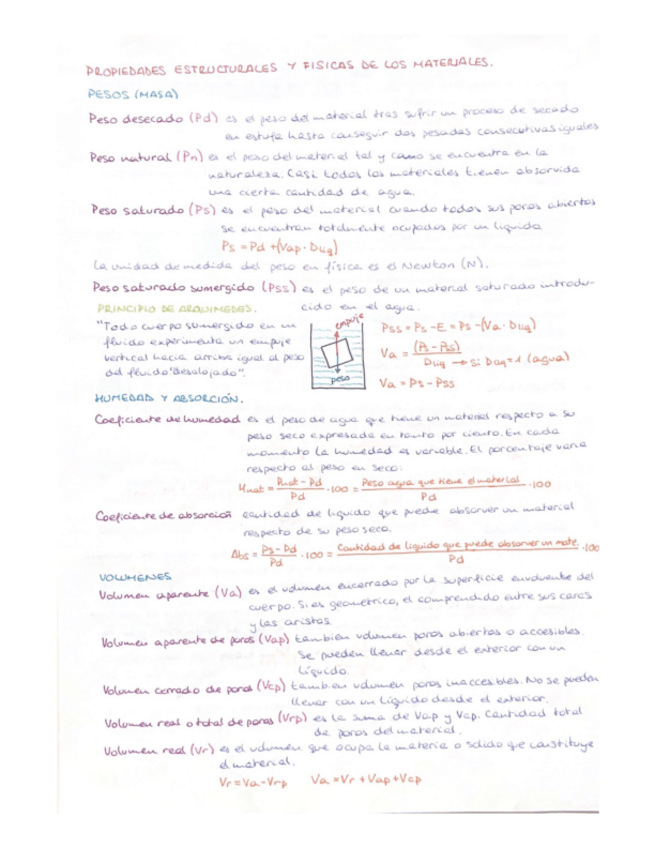 PROPIEDADES ESTRUCTURALES Y FISICAS DE LOS MATERIALES.
PESOS (MASA)
Peso desecado (Pd) es el peso del material tras sufrir un proceso de secado
en estufa hasta conseguir dos pesadas consecutivas iguales
Peso natural (Pn) es el peso del material tal y como se encuentra en la
naturaleza. Casi todos los materiales tienen absorvida
una cierta cantidad de agua.
Peso saturado (Ps) es el peso del material cuando todos sus poros abiertos
se encuentran totalmente ocupados por un líquido
Ps = Pd + (Vap · Dliq)
La unidad de medida del peso en física es el Newton (N).
Peso saturado sumergido (Pss) es el peso de un material saturado introdu-
cido en el agua.
PRINCIPIO DE ARQUIMEDES.
"Todo cuerpo sumergido en un
fluido experimenta un empuje
vertical hacia arriba igual al peso
del fluido desalojado".
empuje
peso
Pss = Ps - E = Ps - (Va · Dliq)
Va = (Ps - Pss) / Dliq → si Dliq = 1 (agua)
Va = Ps - Pss
HUMEDAD Y ABSORCIÓN.
Coeficiente de humedad es el peso de agua que tiene un material respecto a su
peso seco expresada en tanto por ciento. En cada
momento la humedad es variable. El porcentaje varia
respecto al peso en seco:
Hnat = Pnat - Pd / Pd · 100 = Peso agua que tiene el material / Pd · 100
Coeficiente de absorción cantidad de líquido que puede absorver un material
respecto de su peso seco.
Abs = Ps - Pd / Pd · 100 = Cantidad de liquido que puede absorver un mate. / Pd · 100
VOLUMENES
Volumen aparente (Va) es el volumen encerrado por la superficie envolvente del
cuerpo. Si es geometrico, el comprendido entre sus caras
y las aristas.
Volumen aparente de poros (Vap) tambien volumen poros abiertos o accesibles.
Se pueden llenar desde el exterior con un
líquido.
Volumen cerrado de poros (Vcp) tambien volumen poros inaccesibles. No se pueden
llenar con un líquido desde el exterior.
Volumen real o total de poros (Vrp) es la suma de Vap y Vcp. Cantidad total
de poros del material.
Volumen real (Vr) es el volumen que ocupa la materia o solido que constituye
el material.
Vr = Va - Vrp Va = Vr + Vap + Vcp